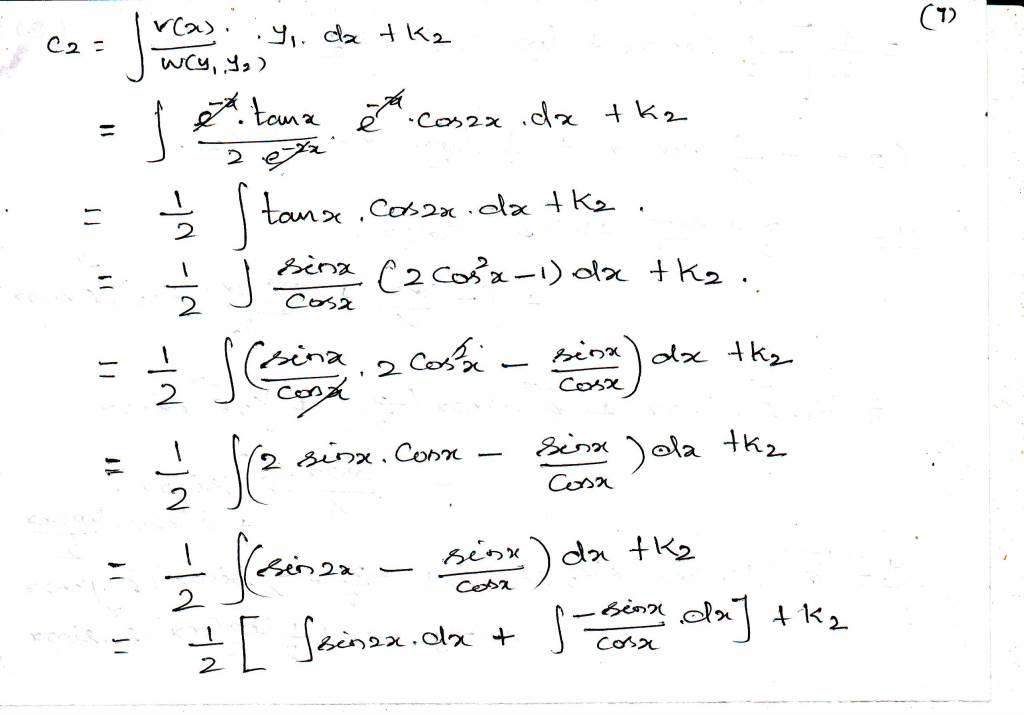 (7)
C2 = ∫ r(x) / W(y1, y2) · y1 · dx + K2
= ∫ e^-x · tanx / 2 e^-2x · e^-x · cos2x · dx + K2
= 1/2 ∫ tanx · Cos2x · dx + K2 .
= 1/2 ∫ sinx / Cosx (2 Cos²x - 1) dx + K2 .
= 1/2 ∫ ( sinx / cosx · 2 Cos²x - sinx / Cosx ) dx + K2
= 1/2 ∫ ( 2 sinx · Cosx - sinx / Cosx ) dx + K2
= 1/2 ∫ ( sin2x - sinx / Cosx ) dx + K2
= 1/2 [ ∫ sin2x · dx + ∫ - sinx / Cosx · dx ] + K2